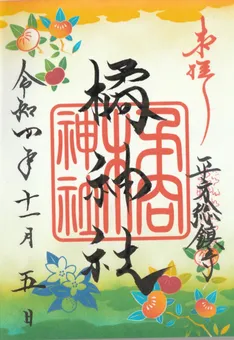 奉拝
総鎮守
橘神社
令和四年十一月五日
神社